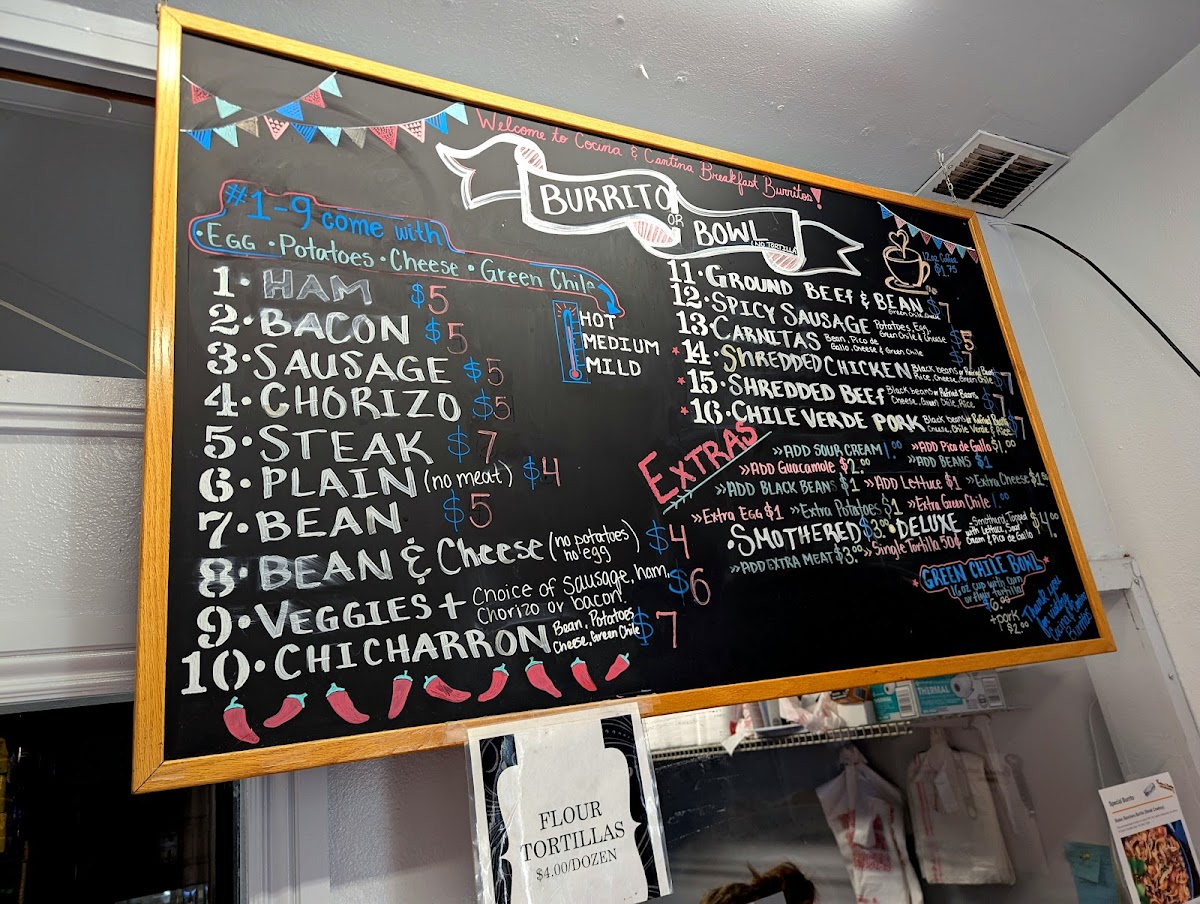 Welcome to Cocina & Cantina Breakfast Burritos!
BURRITO
OR
BOWL
(NO TORTILLA)
#1-9 come with
•Egg •Potatoes •Cheese •Green Chile
1. HAM $5
2. BACON $5
3. SAUSAGE $5
4. CHORIZO $5
5. STEAK $7
6. PLAIN (no meat) $4
7. BEAN $5
8. BEAN & Cheese (no potatoes) $4
no egg
9. VEGGIES + Choice of Sausage, ham, $6
Chorizo or bacon.
10. CHICHARRON Bean, Potatoes $7
Cheese, Green Chile
HOT
MEDIUM
MILD
12oz Coffee
$1.75
11. GROUND BEEF & BEAN $7
Green Chile, Cheese
12. SPICY SAUSAGE Potatoes, Egg $5
Green Chile & Cheese
13. CARNITAS Bean, Pico de $7
Gallo, Cheese & Green Chile
*14. SHREDDED CHICKEN Black beans or Refried Beans $7
Rice, Cheese, Green Chile
*15. SHREDDED BEEF Black beans or Refried Beans $7
Cheese, Green Chile, Rice
*16. CHILE VERDE PORK Black beans or Refried Beans $7
Cheese, Chile Verde & Rice
EXTRAS
»ADD SOUR CREAM 1.00 »ADD Pico de Gallo $1.00
»ADD Guacamole $2.00 »ADD BEANS $1
»ADD BLACK BEANS $1 »ADD Lettuce $1 »Extra Cheese $1.50
»Extra Egg $1 »Extra Potatoes $1 »Extra Green Chile 1.00
•SMOTHERED $3.00 •DELUXE Smothered, Topped $4.00
with Lettuce, Sour
Cream & Pico de Gallo
»ADD EXTRA MEAT $3.00 »Single Tortilla 50¢
*GREEN CHILE BOWL*
16oz cup with corn
or flour tortilla
$6.00
+pork
$2.00
Thank you
for visiting
Cocina & Cantina
Burritos
FLOUR
TORTILLAS
$4.00/DOZEN
THERMAL
Special Burrito